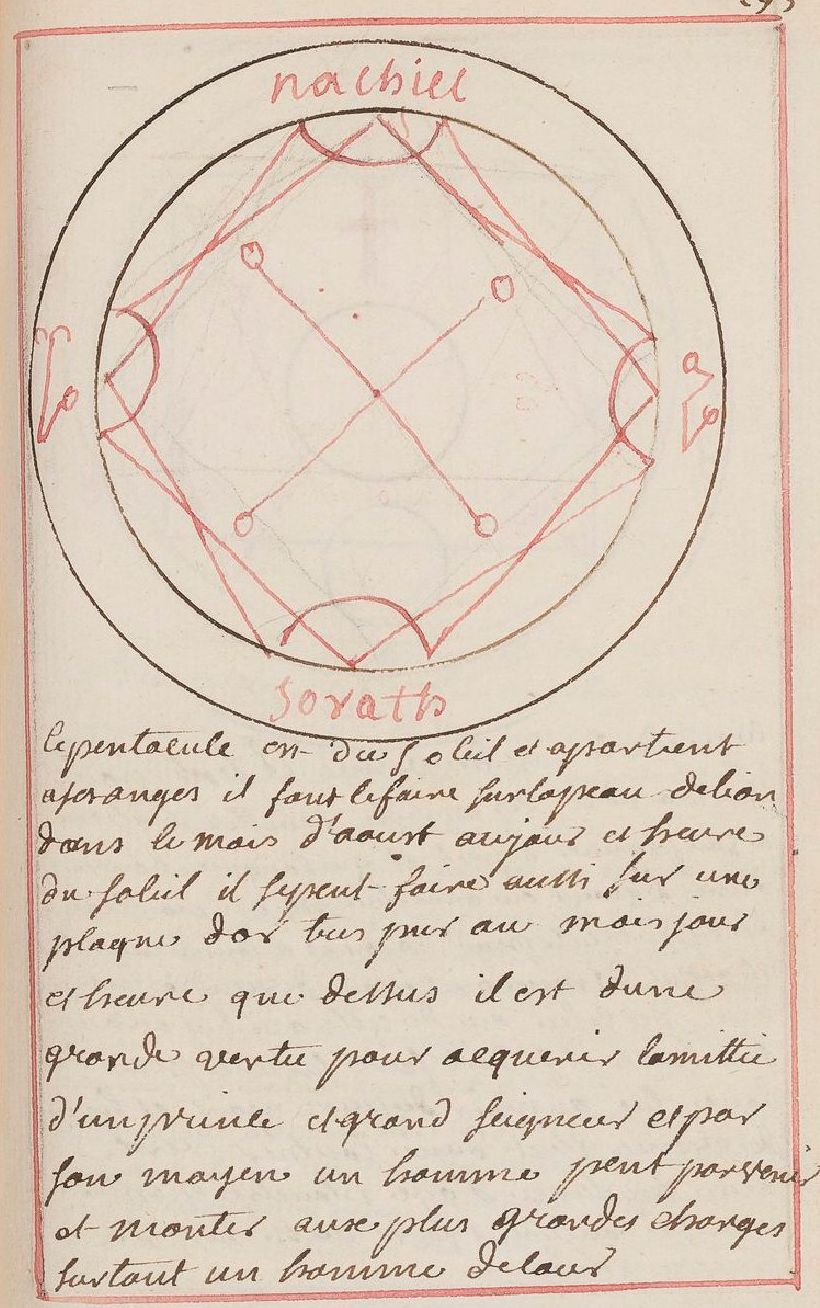 nachiel
sorath
lepentacule est du soleil et apartient
asesanges il faut lefaire surlapeau delion
dans le mois d'aoust aujour et heure
du soleil il sepeut faire aussi sur une
plaque dor bus pur au mois jour
et heure que dessus il est dune
grande vertu pour acquerir lamittié
d'unprince etgrand seigneur etpar
son moyen un homme peut parvenir
et monter aux plus grandes charges
surtout un homme delour